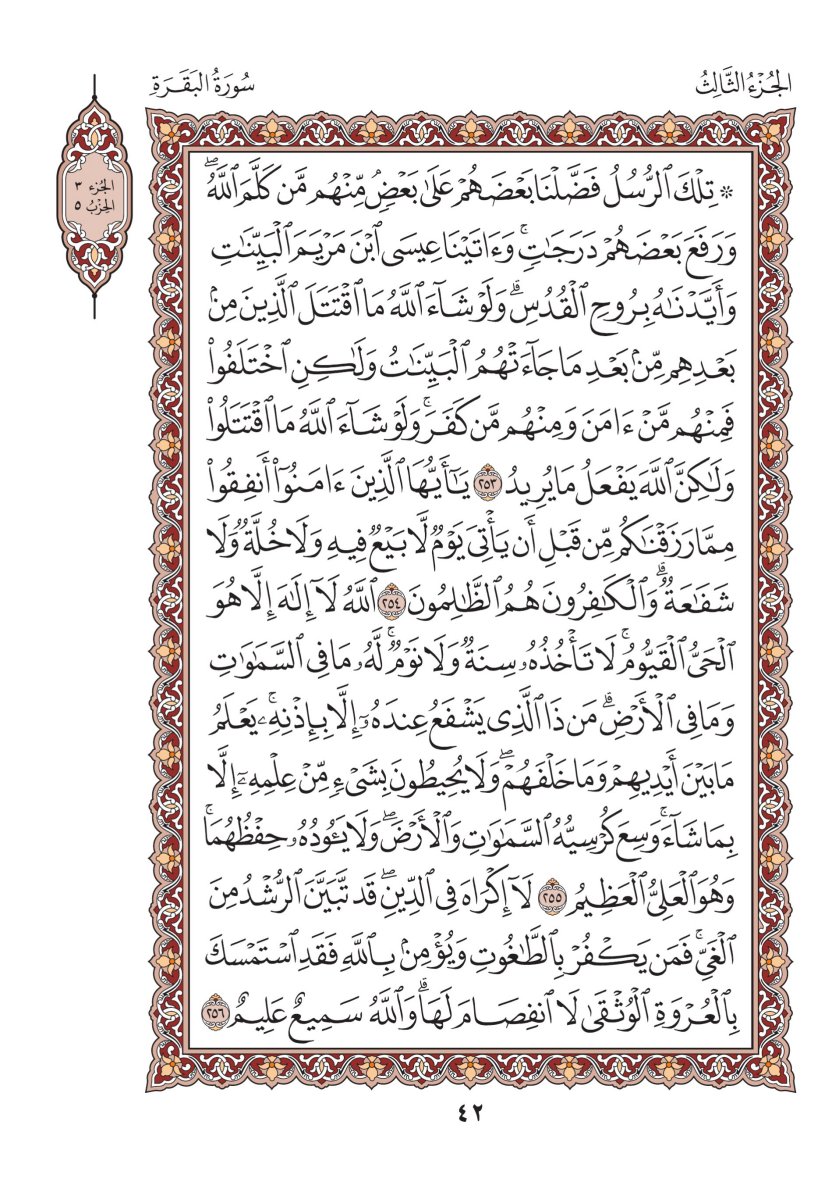 الجُزْءُ الثَّالِثُ
سُورَةُ البَقَرَةِ
الجُزء ٣
الحِزْبُ ٥
۞ تِلْكَ ٱلرُّسُلُ فَضَّلْنَا بَعْضَهُمْ عَلَىٰ بَعْضٖۘ مِّنْهُم مَّن كَلَّمَ ٱللَّهُۖ
وَرَفَعَ بَعْضَهُمْ دَرَجَٰتٖۚ وَءَاتَيْنَا عِيسَى ٱبْنَ مَرْيَمَ ٱلْبَيِّنَٰتِ
وَأَيَّدْنَٰهُ بِرُوحِ ٱلْقُدُسِۗ وَلَوْ شَآءَ ٱللَّهُ مَا ٱقْتَتَلَ ٱلَّذِينَ مِنۢ
بَعْدِهِم مِّنۢ بَعْدِ مَا جَآءَتْهُمُ ٱلْبَيِّنَٰتُ وَلَٰكِنِ ٱخْتَلَفُواْ
فَمِنْهُم مَّنْ ءَامَنَ وَمِنْهُم مَّن كَفَرَۚ وَلَوْ شَآءَ ٱللَّهُ مَا ٱقْتَتَلُواْ
وَلَٰكِنَّ ٱللَّهَ يَفْعَلُ مَا يُرِيدُ ٢٥٣ يَٰٓأَيُّهَا ٱلَّذِينَ ءَامَنُوٓاْ أَنفِقُواْ
مِمَّا رَزَقْنَٰكُم مِّن قَبْلِ أَن يَأْتِيَ يَوْمٞ لَّا بَيْعٞ فِيهِ وَلَا خُلَّةٞ وَلَا
شَفَٰعَةٞۗ وَٱلْكَٰفِرُونَ هُمُ ٱلظَّٰلِمُونَ ٢٥٤ ٱللَّهُ لَآ إِلَٰهَ إِلَّا هُوَ
ٱلْحَيُّ ٱلْقَيُّومُۚ لَا تَأْخُذُهُۥ سِنَةٞ وَلَا نَوْمٞۚ لَّهُۥ مَا فِي ٱلسَّمَٰوَٰتِ
وَمَا فِي ٱلْأَرْضِۗ مَن ذَا ٱلَّذِي يَشْفَعُ عِندَهُۥٓ إِلَّا بِإِذْنِهِۦۚ يَعْلَمُ
مَا بَيْنَ أَيْدِيهِمْ وَمَا خَلْفَهُمْۖ وَلَا يُحِيطُونَ بِشَيْءٖ مِّنْ عِلْمِهِۦٓ إِلَّا
بِمَا شَآءَۚ وَسِعَ كُرْسِيُّهُ ٱلسَّمَٰوَٰتِ وَٱلْأَرْضَۖ وَلَا يَـُٔودُهُۥ حِفْظُهُمَاۚ
وَهُوَ ٱلْعَلِيُّ ٱلْعَظِيمُ ٢٥٥ لَآ إِكْرَاهَ فِي ٱلدِّينِۖ قَد تَّبَيَّنَ ٱلرُّشْدُ مِنَ
ٱلْغَيِّۚ فَمَن يَكْفُرْ بِٱلطَّٰغُوتِ وَيُؤْمِنۢ بِٱللَّهِ فَقَدِ ٱسْتَمْسَكَ
بِٱلْعُرْوَةِ ٱلْوُثْقَىٰ لَا ٱنفِصَامَ لَهَاۗ وَٱللَّهُ سَمِيعٌ عَلِيمٌ ٢٥٦
٤٢